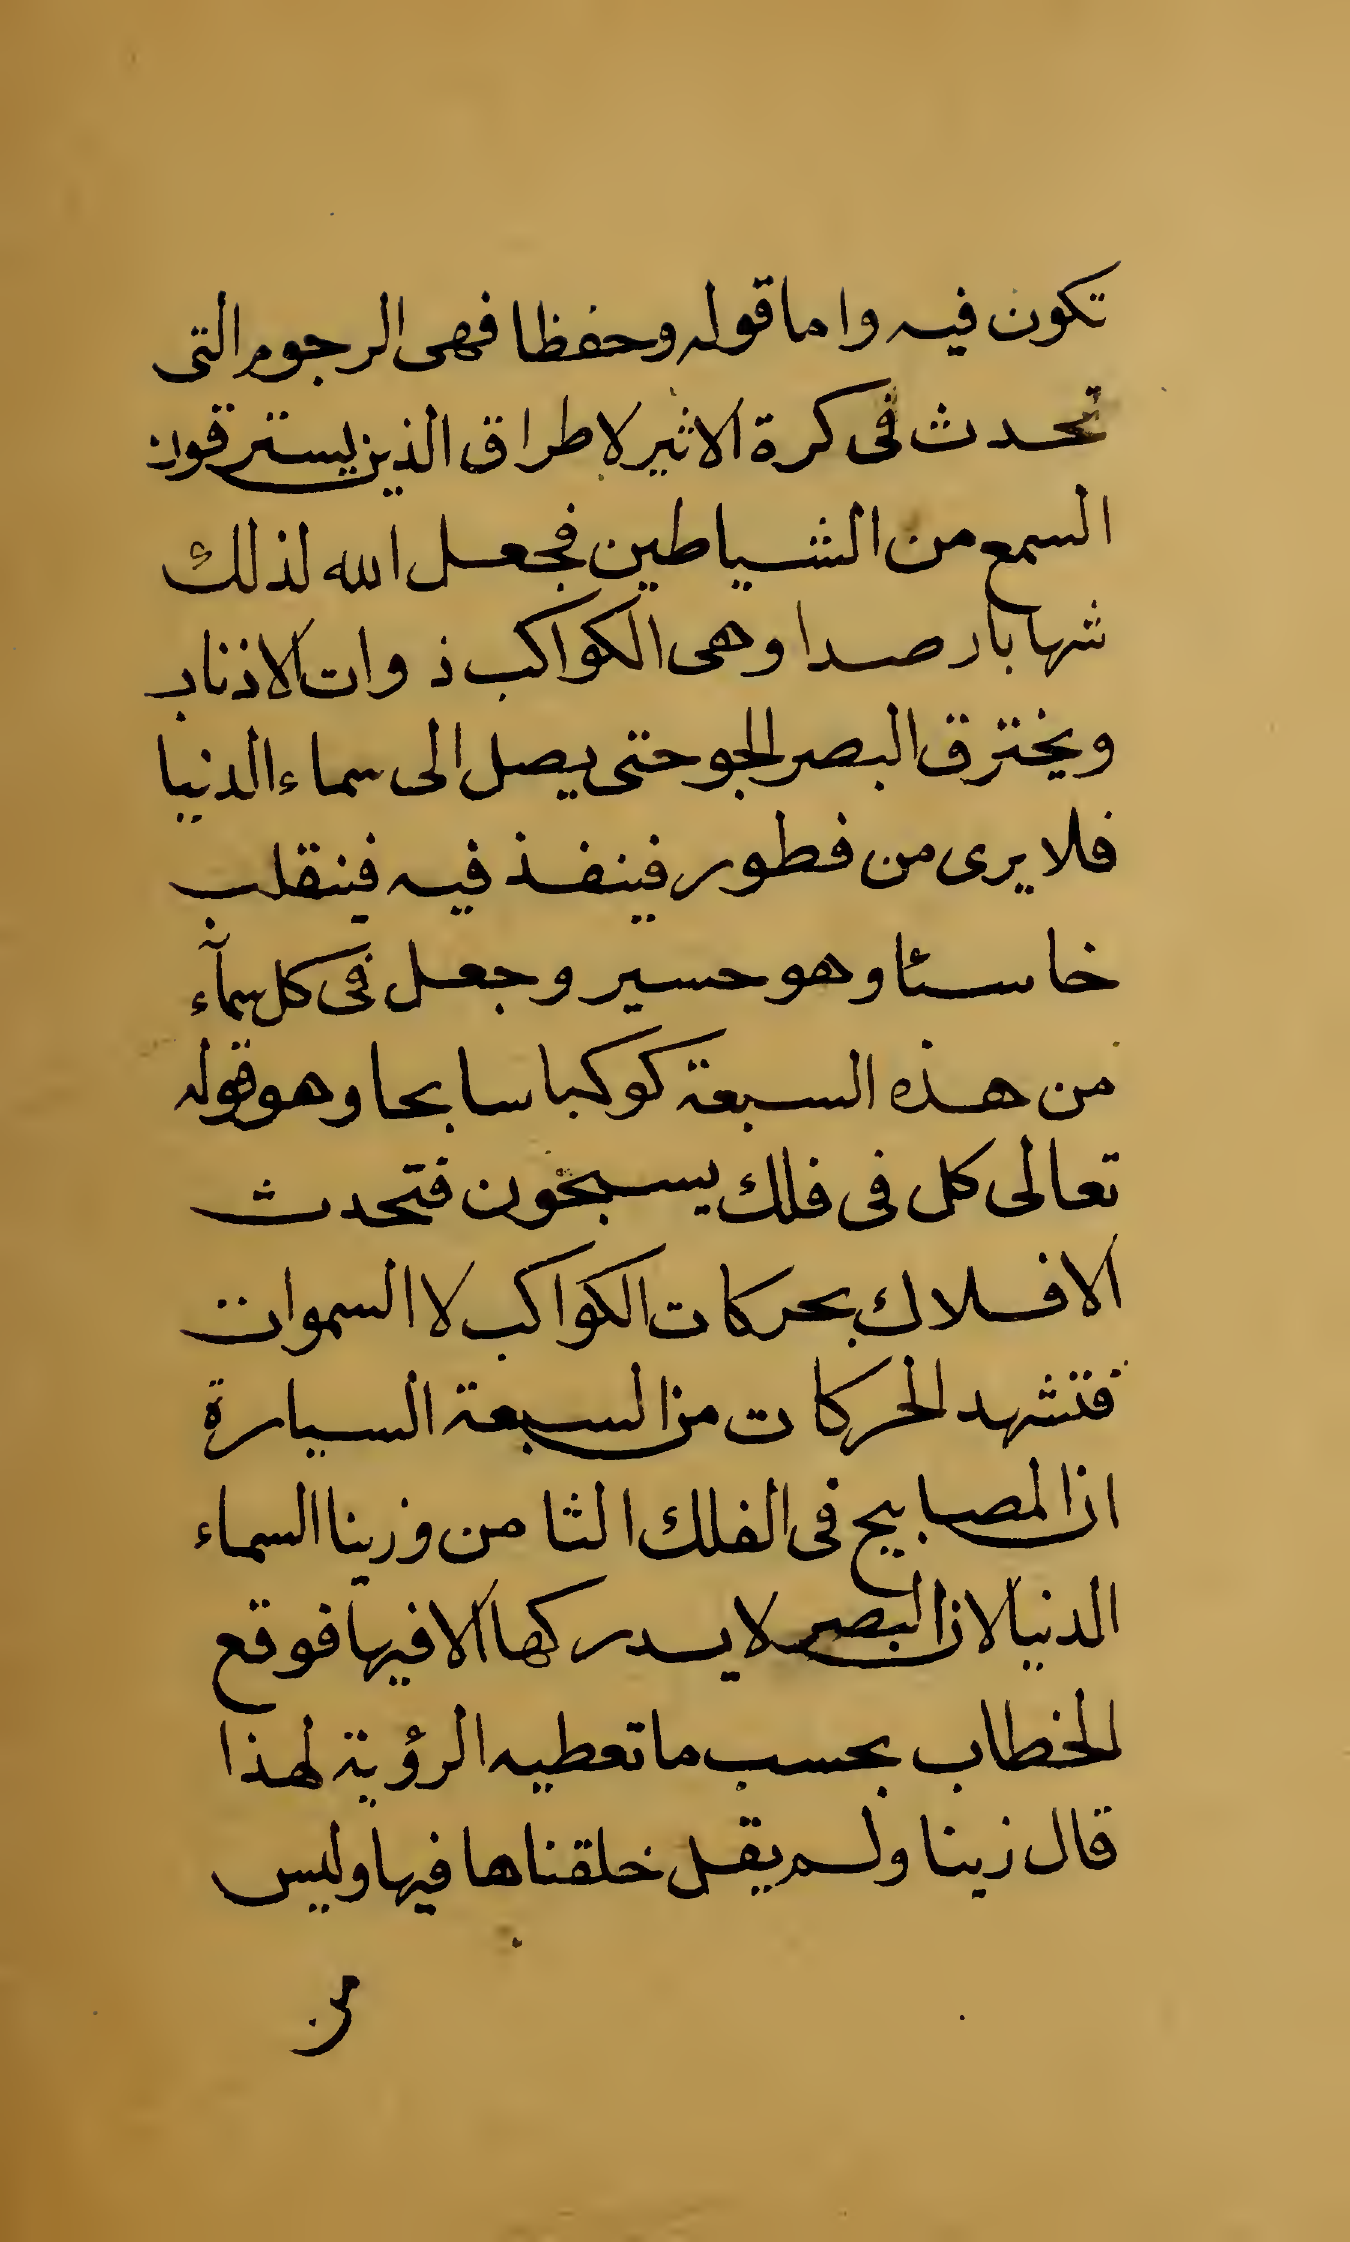 تكون فيه واما قوله وحفظا فهى الرجوم التى
تحدث فى كرة الاثير لاطراق الذين يسترقون
السمع من الشياطين فجعل الله لذلك
شهابا رصدا وهى الكواكب ذوات الاذناب
ويخترق البصر الجو حتى يصل الى سماء الدنيا
فلا يرى من فطور فينفذ فيه فينقلب
خاسئا وهو حسير وجعل فى كل سمآء
من هذه السبعة كوكبا سابحا وهو قوله
تعالى كل فى فلك يسبحون فتحدث
الافلاك بحركات الكواكب لا السموات
فتشهد الحركات من السبعة السيارة
ان المصابيح فى الفلك الثامن وزينا السماء
الدنيا لان البصر لا يدركها الا فيها فوقع
الخطاب بحسب ما تعطيه الرؤية لهذا
قال زينا ولم يقل خلقناها فيها وليس
من